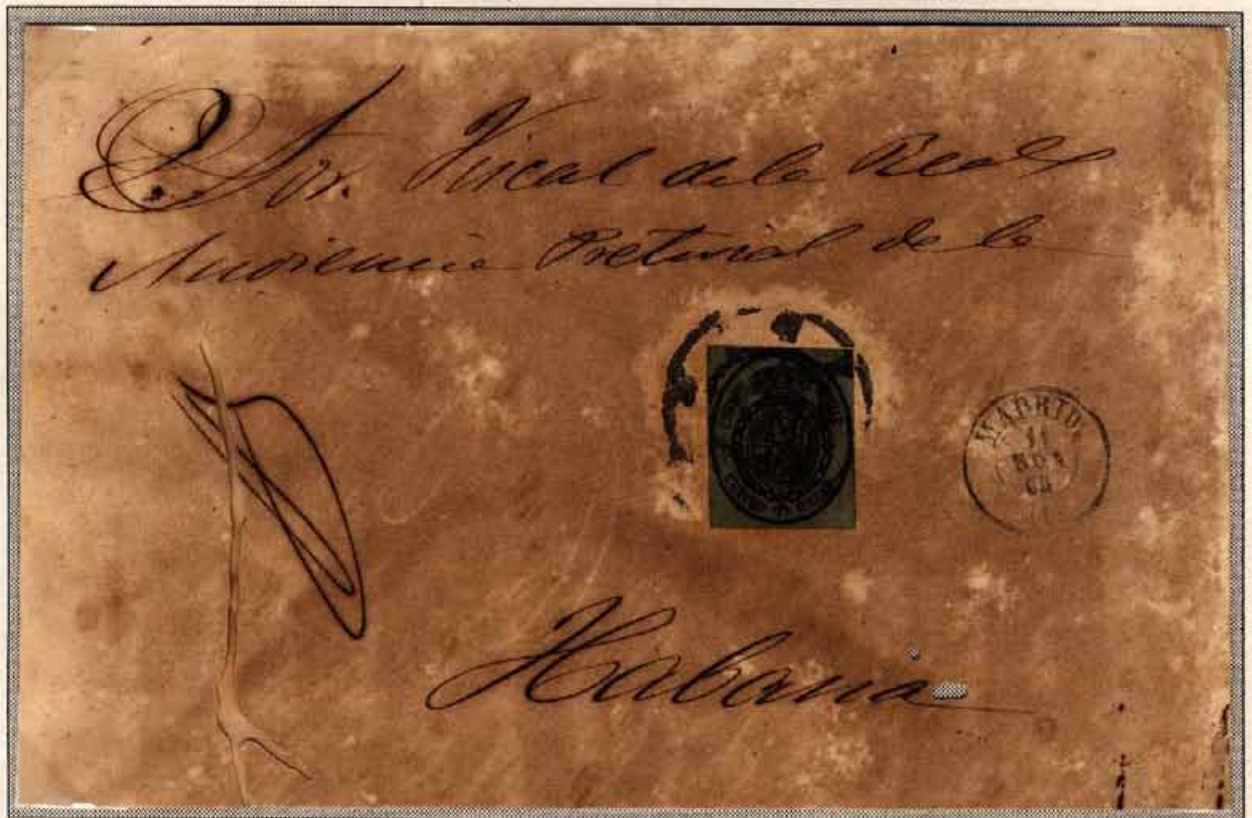 Sor. Fiscal de la Real
Audiencia Pretorial de la
MADRID
11
NOV
Habana